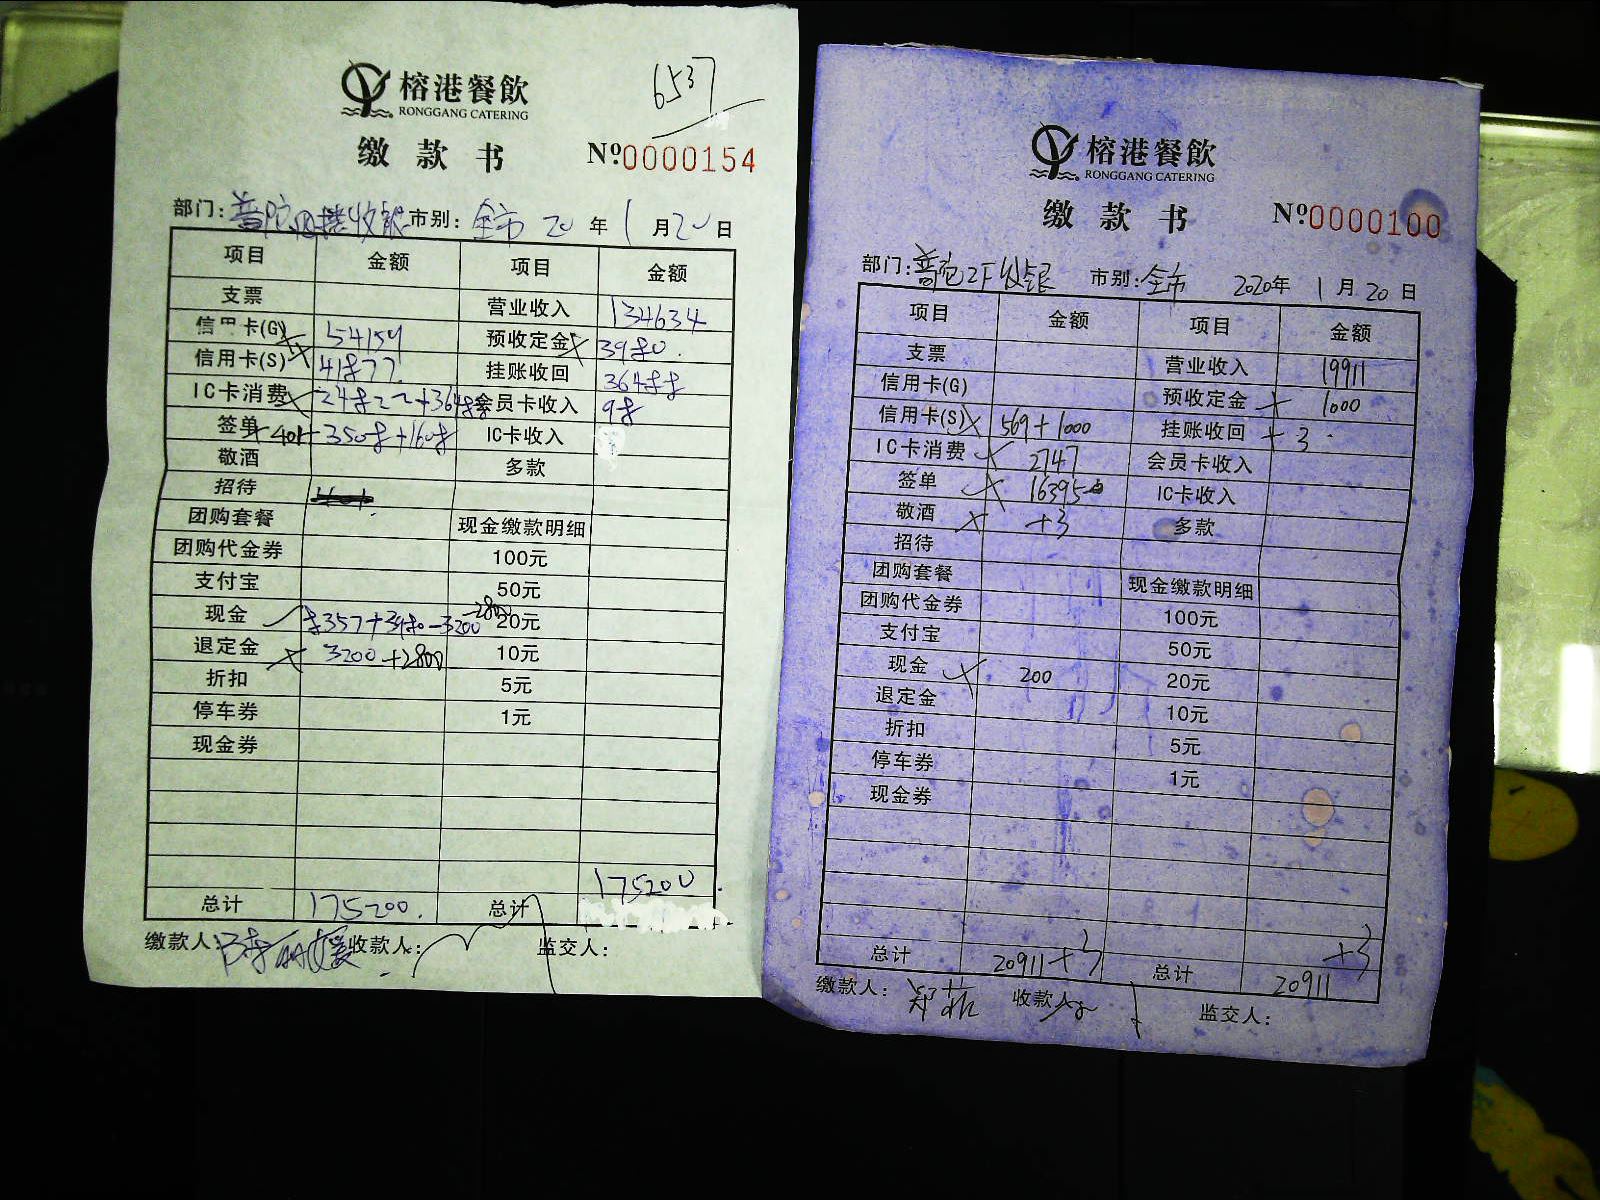 榕港餐飲
RONGGANG CATERING
6537
缴款书 Nº0000154
部门: 收银 市别: 全市 20年1月20日
项目 金额 项目 金额
支票 营业收入 134634
信用卡(G) 54159 预收定金 3980
信用卡(S) 41877 挂账收回 36488
IC卡消费 24822+36488 会员卡收入 98
签单 401+3508+1608 IC卡收入
敬酒 多款
招待
团购套餐 现金缴款明细
团购代金券 100元
支付宝 50元
现金 8357+3980-3200-2800 20元
退定金 3200+2800 10元
折扣 5元
停车券 1元
现金券
175200
总计 175200. 总计
缴款人: 收款人: 监交人:
榕港餐飲
RONGGANG CATERING
缴款书 Nº0000100
部门: 2F收银 市别: 全市 2020年1月20日
项目 金额 项目 金额
支票 营业收入 19911
信用卡(G) 预收定金 1000
信用卡(S) 569+1000 挂账收回 +3
IC卡消费 2747 会员卡收入
签单 16395 IC卡收入
敬酒 +3 多款
招待
团购套餐 现金缴款明细
团购代金券 100元
支付宝 50元
现金 200 20元
退定金 10元
折扣 5元
停车券 1元
现金券
+3
总计 20911+3 总计 20911
缴款人: 收款人: 监交人: